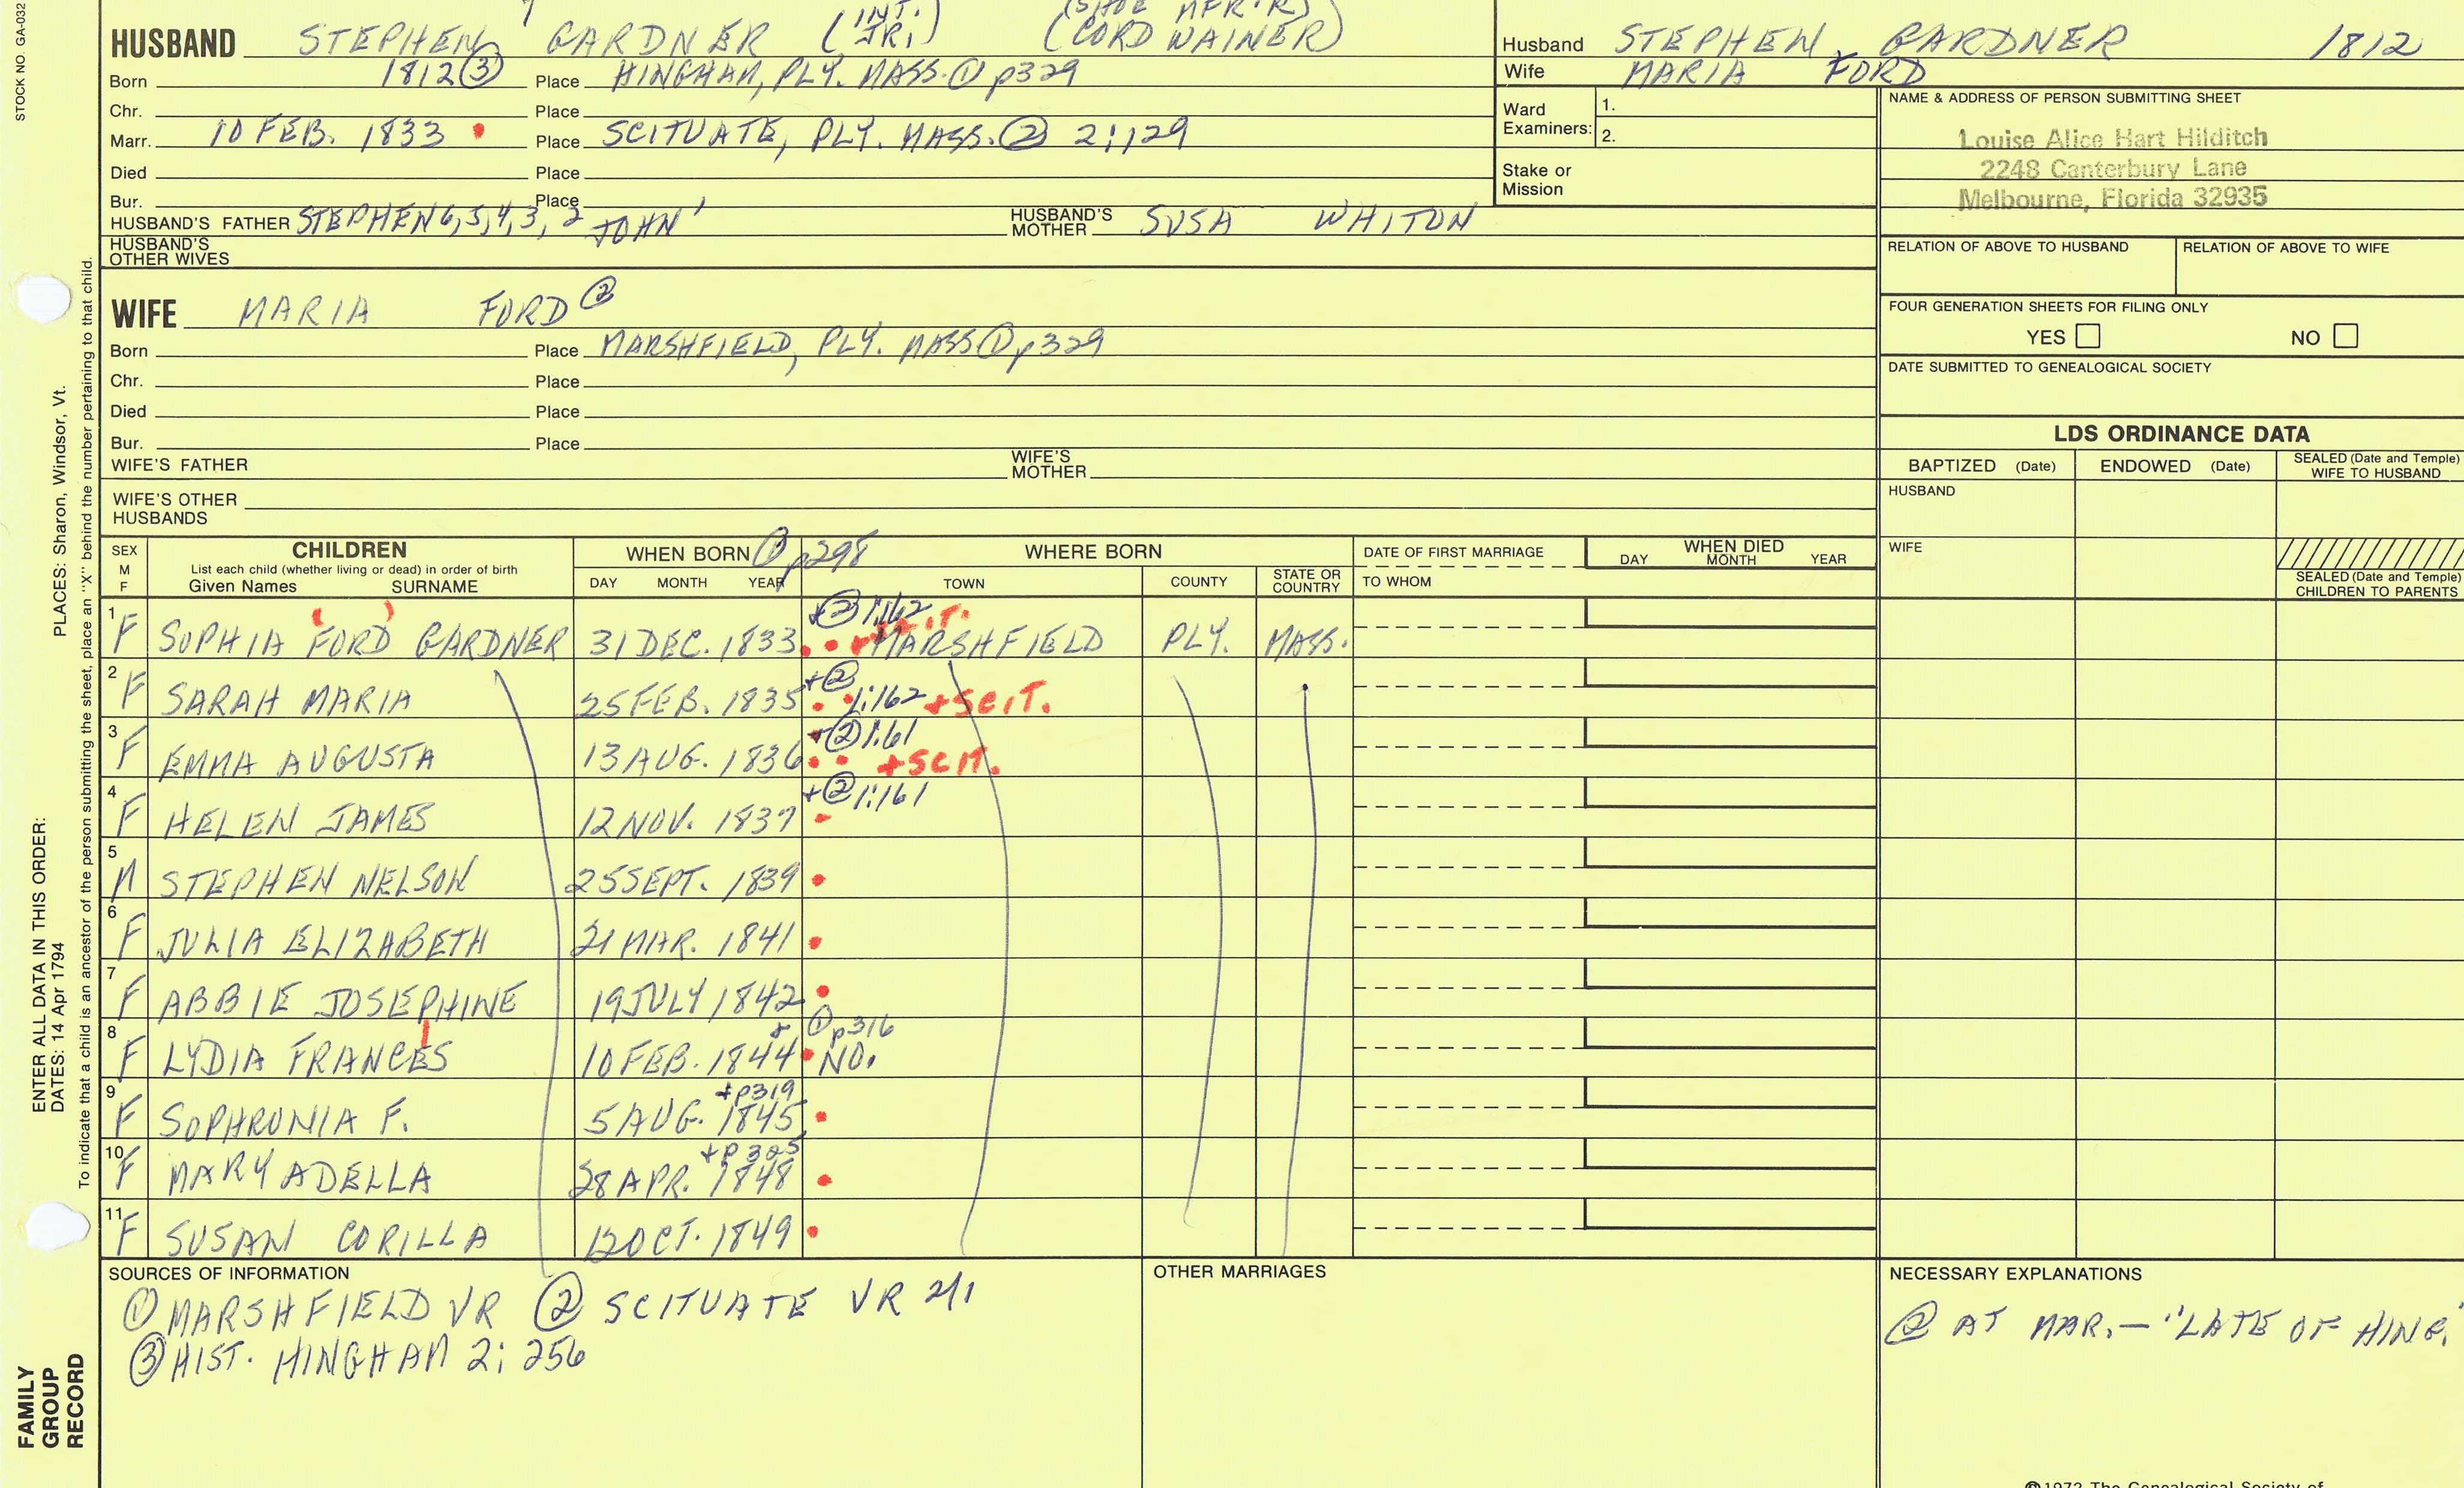 STOCK NO. GA-032
7 (INT. (SHOE MFR.R)
HUSBAND STEPHEN GARDNER JR.) (CORDWAINER)
Born 1812③ Place HINGHAM, PLY. MASS.① p329
Chr. Place
Marr. 10 FEB. 1833 Place SCITUATE, PLY. MASS.② 2:129
Died Place
Bur. Place
HUSBAND'S FATHER STEPHEN6,5,4,3,2 JOHN' HUSBAND'S MOTHER SUSA WHITON
HUSBAND'S OTHER WIVES
Husband STEPHEN GARDNER 1812
Wife MARIA FORD
Ward Examiners: 1.
2.
Stake or Mission
NAME & ADDRESS OF PERSON SUBMITTING SHEET
Louise Alice Hart Hilditch
2248 Canterbury Lane
Melbourne, Florida 32935
RELATION OF ABOVE TO HUSBAND RELATION OF ABOVE TO WIFE
FOUR GENERATION SHEETS FOR FILING ONLY
YES NO
DATE SUBMITTED TO GENEALOGICAL SOCIETY
WIFE MARIA FORD②
Born Place MARSHFIELD, PLY. MASS① p329
Chr. Place
Died Place
Bur. Place
WIFE'S FATHER WIFE'S MOTHER
WIFE'S OTHER HUSBANDS
LDS ORDINANCE DATA
BAPTIZED (Date) ENDOWED (Date) SEALED (Date and Temple) WIFE TO HUSBAND
HUSBAND
WIFE
SEALED (Date and Temple) CHILDREN TO PARENTS
SEX M F CHILDREN WHEN BORN ① p298 WHERE BORN DATE OF FIRST MARRIAGE WHEN DIED
List each child (whether living or dead) in order of birth
Given Names SURNAME DAY MONTH YEAR TOWN COUNTY STATE OR COUNTRY TO WHOM DAY MONTH YEAR
+② 1:162
1 F SOPHIA (FORD) GARDNER 31 DEC. 1833 MARSHFIELD PLY. MASS.
+②
2 F SARAH MARIA 25 FEB. 1835 1:162 +SCIT.
+② 1:61
3 F EMMA AUGUSTA 13 AUG. 1836 +SCIT.
+② 1:161
4 F HELEN JAMES 12 NOV. 1837
5 M STEPHEN NELSON 25 SEPT. 1839
6 F JULIA ELIZABETH 21 MAR. 1841
7 F ABBIE JOSEPHINE 19 JULY 1842
+ ① p316
8 F LYDIA FRANCES 10 FEB. 1844 NO.
+p319
9 F SOPHRONIA F. 5 AUG. 1845
+p 325
10 F MARY ADELLA 28 APR. 1848
11 F SUSAN CORILLA OCT. 1849
SOURCES OF INFORMATION
① MARSHFIELD VR ② SCITUATE VR 2/1
③ HIST. HINGHAM 2: 256
OTHER MARRIAGES
NECESSARY EXPLANATIONS
② AT MAR.— "LATE OF HING."
PLACES: Sharon, Windsor, Vt.
To indicate that a child is an ancestor of the person submitting the sheet, place an "X" behind the number pertaining to that child.
ENTER ALL DATA IN THIS ORDER:
DATES: 14 Apr 1794
FAMILY
GROUP
RECORD
©1972 The Genealogical Society of